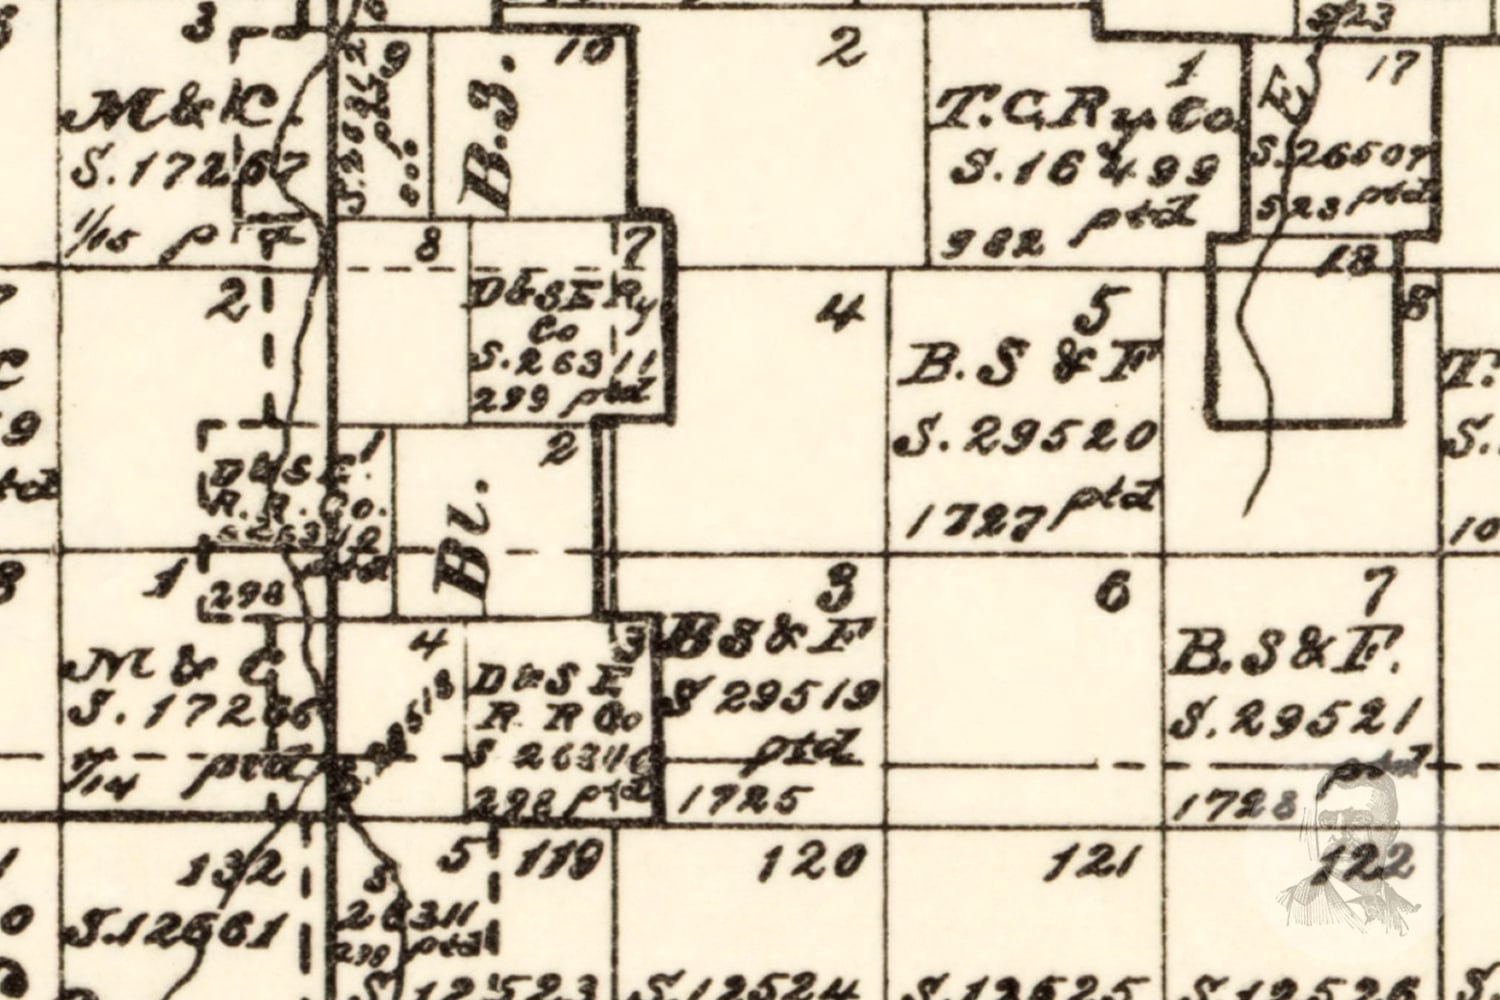 3
M & C.
S. 17267
1/15 p
10
B. 3.
2
1
T. C. Ry. Co
S. 16499
982 ptd
S 23
17
E
S. 26507
523 ptd
18
8
2
8
7
D & S E Ry
Co
S. 26311
299 ptd
4
5
B. S & F
S. 29520
1727 ptd
8
1
D & S E.
R. R. Co.
298
2
B1.
1
M & C
S. 17266
1/14 ptd
4
3
D & S E
R. R Co
298 ptd
3
B S & F
S 29519
ptd
1725
6
7
B. S & F.
S. 29521
ptd
1728
132
S. 12661
5
S
26311
298 ptd
119
S 12523
120
S. 12524
121
S. 12525
122
S. 12526